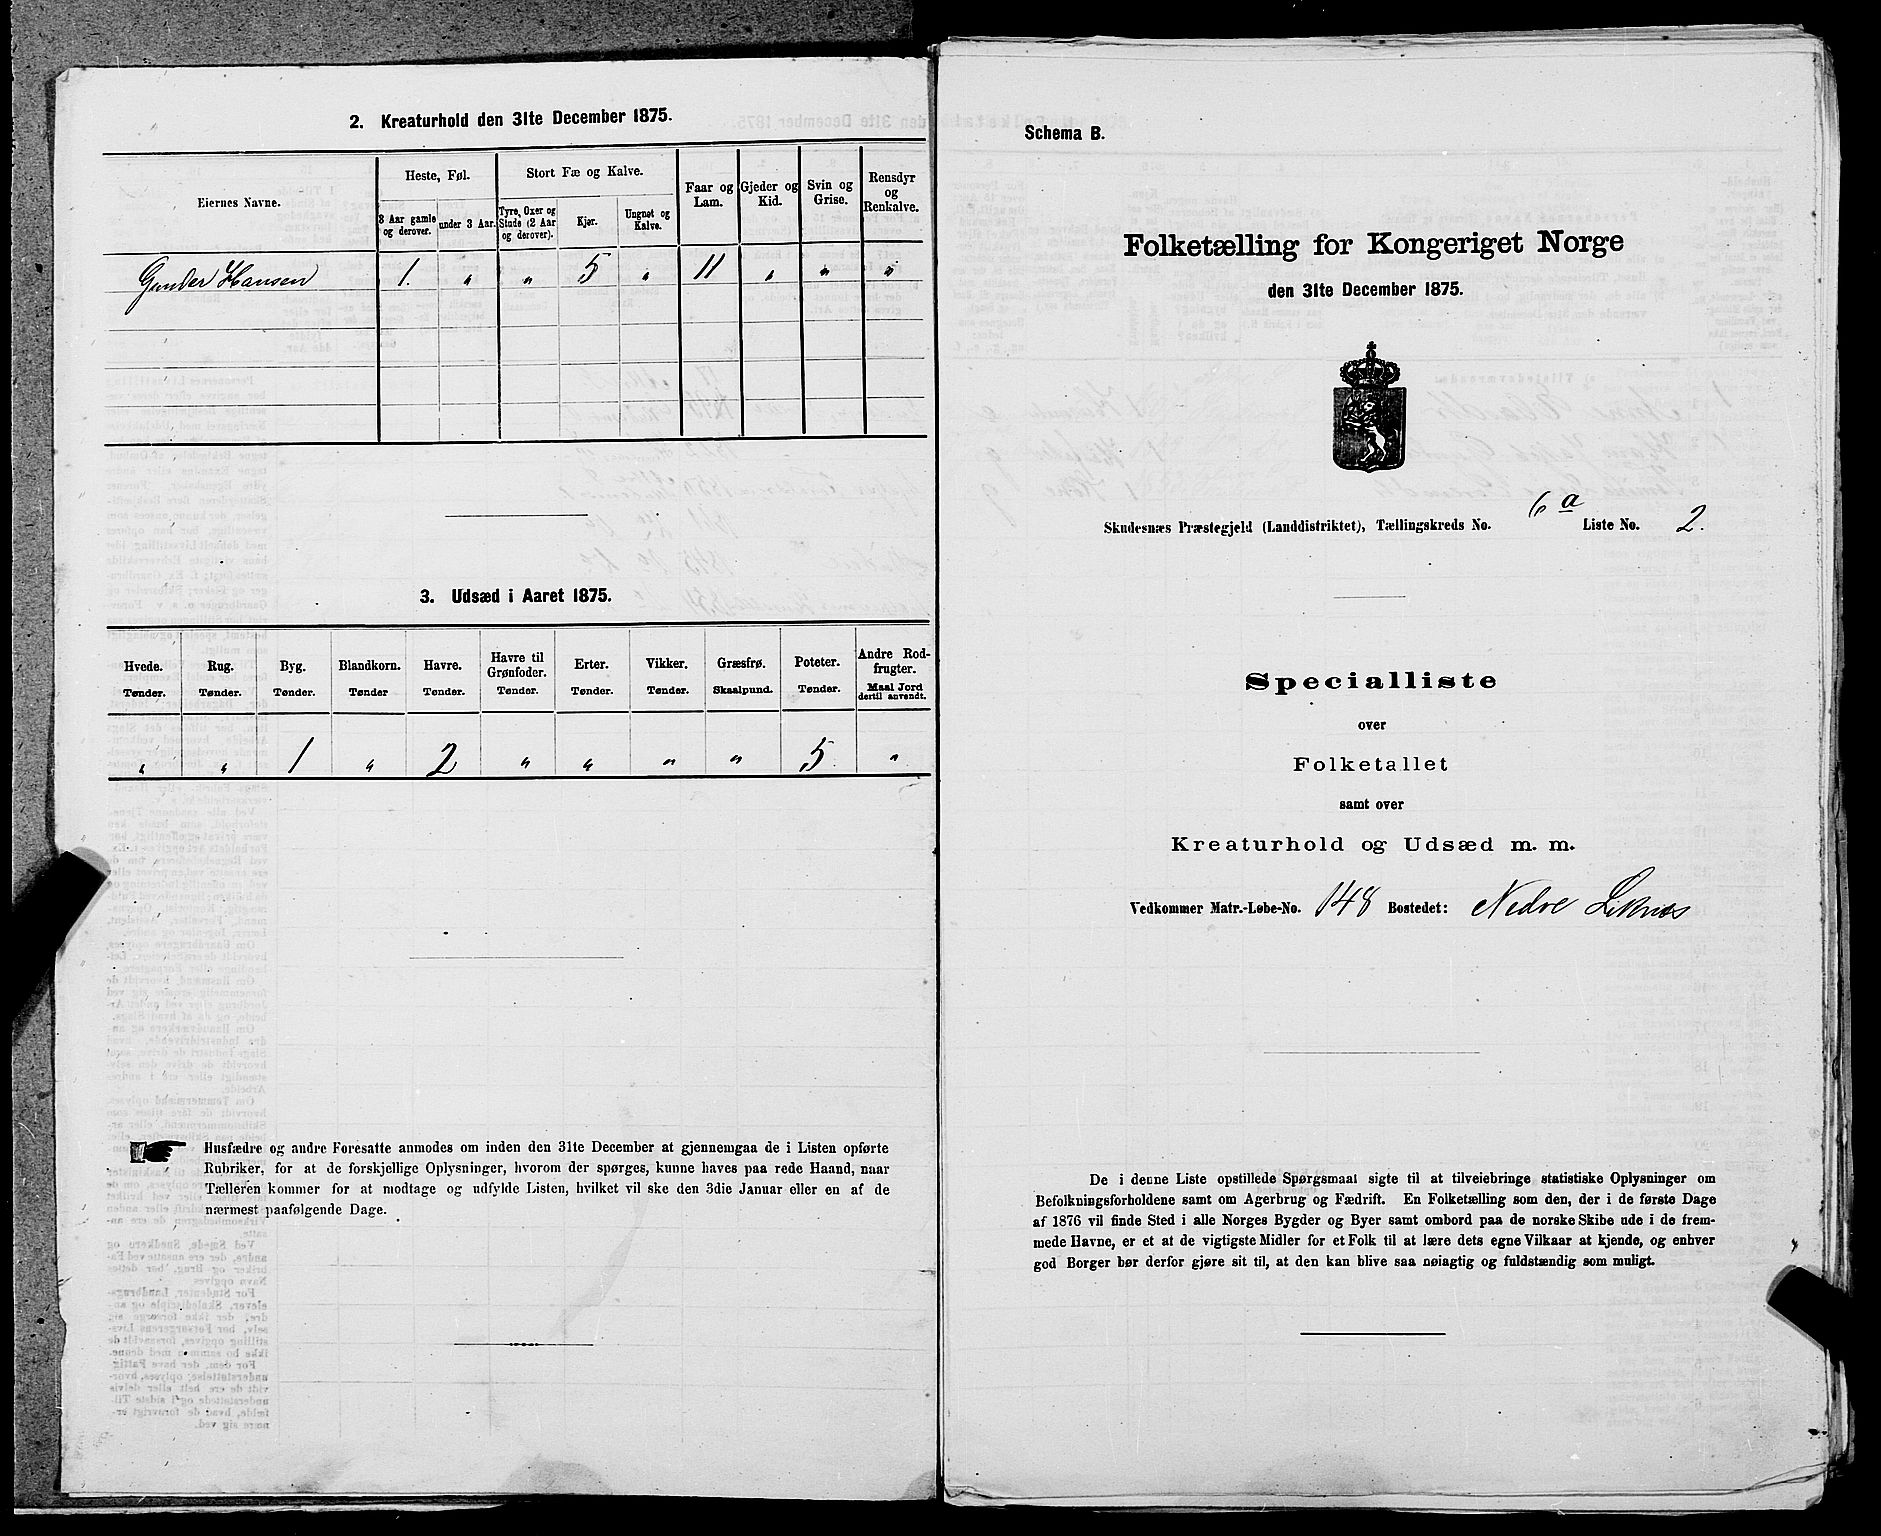 2. Kreaturhold den 31te December 1875.
Eiernes Navne.
Heste, Føl.
Stort Fæ og Kalve.
Faar og Lam.
Gjeder og Kid.
Svin og Grise.
Rensdyr og Renkalve.
3 Aar gamle og derover.
under 3 Aar.
Tyre, Oxer og Stude (2 Aar og derover).
Kjør.
Ungnøt og Kalve.
Gunder Hansen 1. " " 5 " 11 " " "
3. Udsæd i Aaret 1875.
Hvede. Rug. Byg. Blandkorn. Havre. Havre til Grønfoder. Erter. Vikker. Græsfrø. Poteter. Andre Rodfrugter.
Tønder. Tønder. Tønder. Tønder Tønder. Tønder. Tønder. Tønder. Skaalpund. Tønder. Maal Jord dertil anvendt.
" " 1 " 2 " " " " 5 "
Husfædre og andre Foresatte anmodes om inden den 31te December at gjennemgaa de i Listen opførte
Rubriker, for at de forskjellige Oplysninger, hvorom der spørges, kunne haves paa rede Haand, naar
Tælleren kommer for at modtage og udfylde Listen, hvilket vil ske den 3die Januar eller en af de
nærmest paafølgende Dage.
Schema B.
Folketælling for Kongeriget Norge
den 31te December 1875.
Skudesnæs Præstegjeld (Landdistriktet), Tællingskreds No. 6a Liste No. 2.
Specialliste
over
Folketallet
samt over
Kreaturhold og Udsæd m. m.
Vedkommer Matr.-Løbe-No. 148 Bostedet: Nedre Liknæs
De i denne Liste opstillede Spørgsmaal sigte til at tilveiebringe statistiske Oplysninger om
Befolkningsforholdene samt om Agerbrug og Fædrift. En Folketælling som den, der i de første Dage
af 1876 vil finde Sted i alle Norges Bygder og Byer samt ombord paa de norske Skibe ude i de frem-
mede Havne, er et at de vigtigste Midler for et Folk til at lære dets egne Vilkaar at kjende, og enhver
god Borger bør derfor gjøre sit til, at den kan blive saa nøiagtig og fuldstændig som muligt.